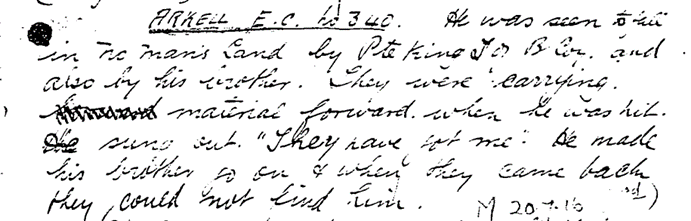 ARKELL E.C. No 340. He was seen to fall
in No man's Land by Pte King J of B Coy. and
also by his brother. They were carrying
material forward when he was hit.
He sung out. "They have got me". He made
his brother go on & when they came back
they could not find him. M 20.7.16